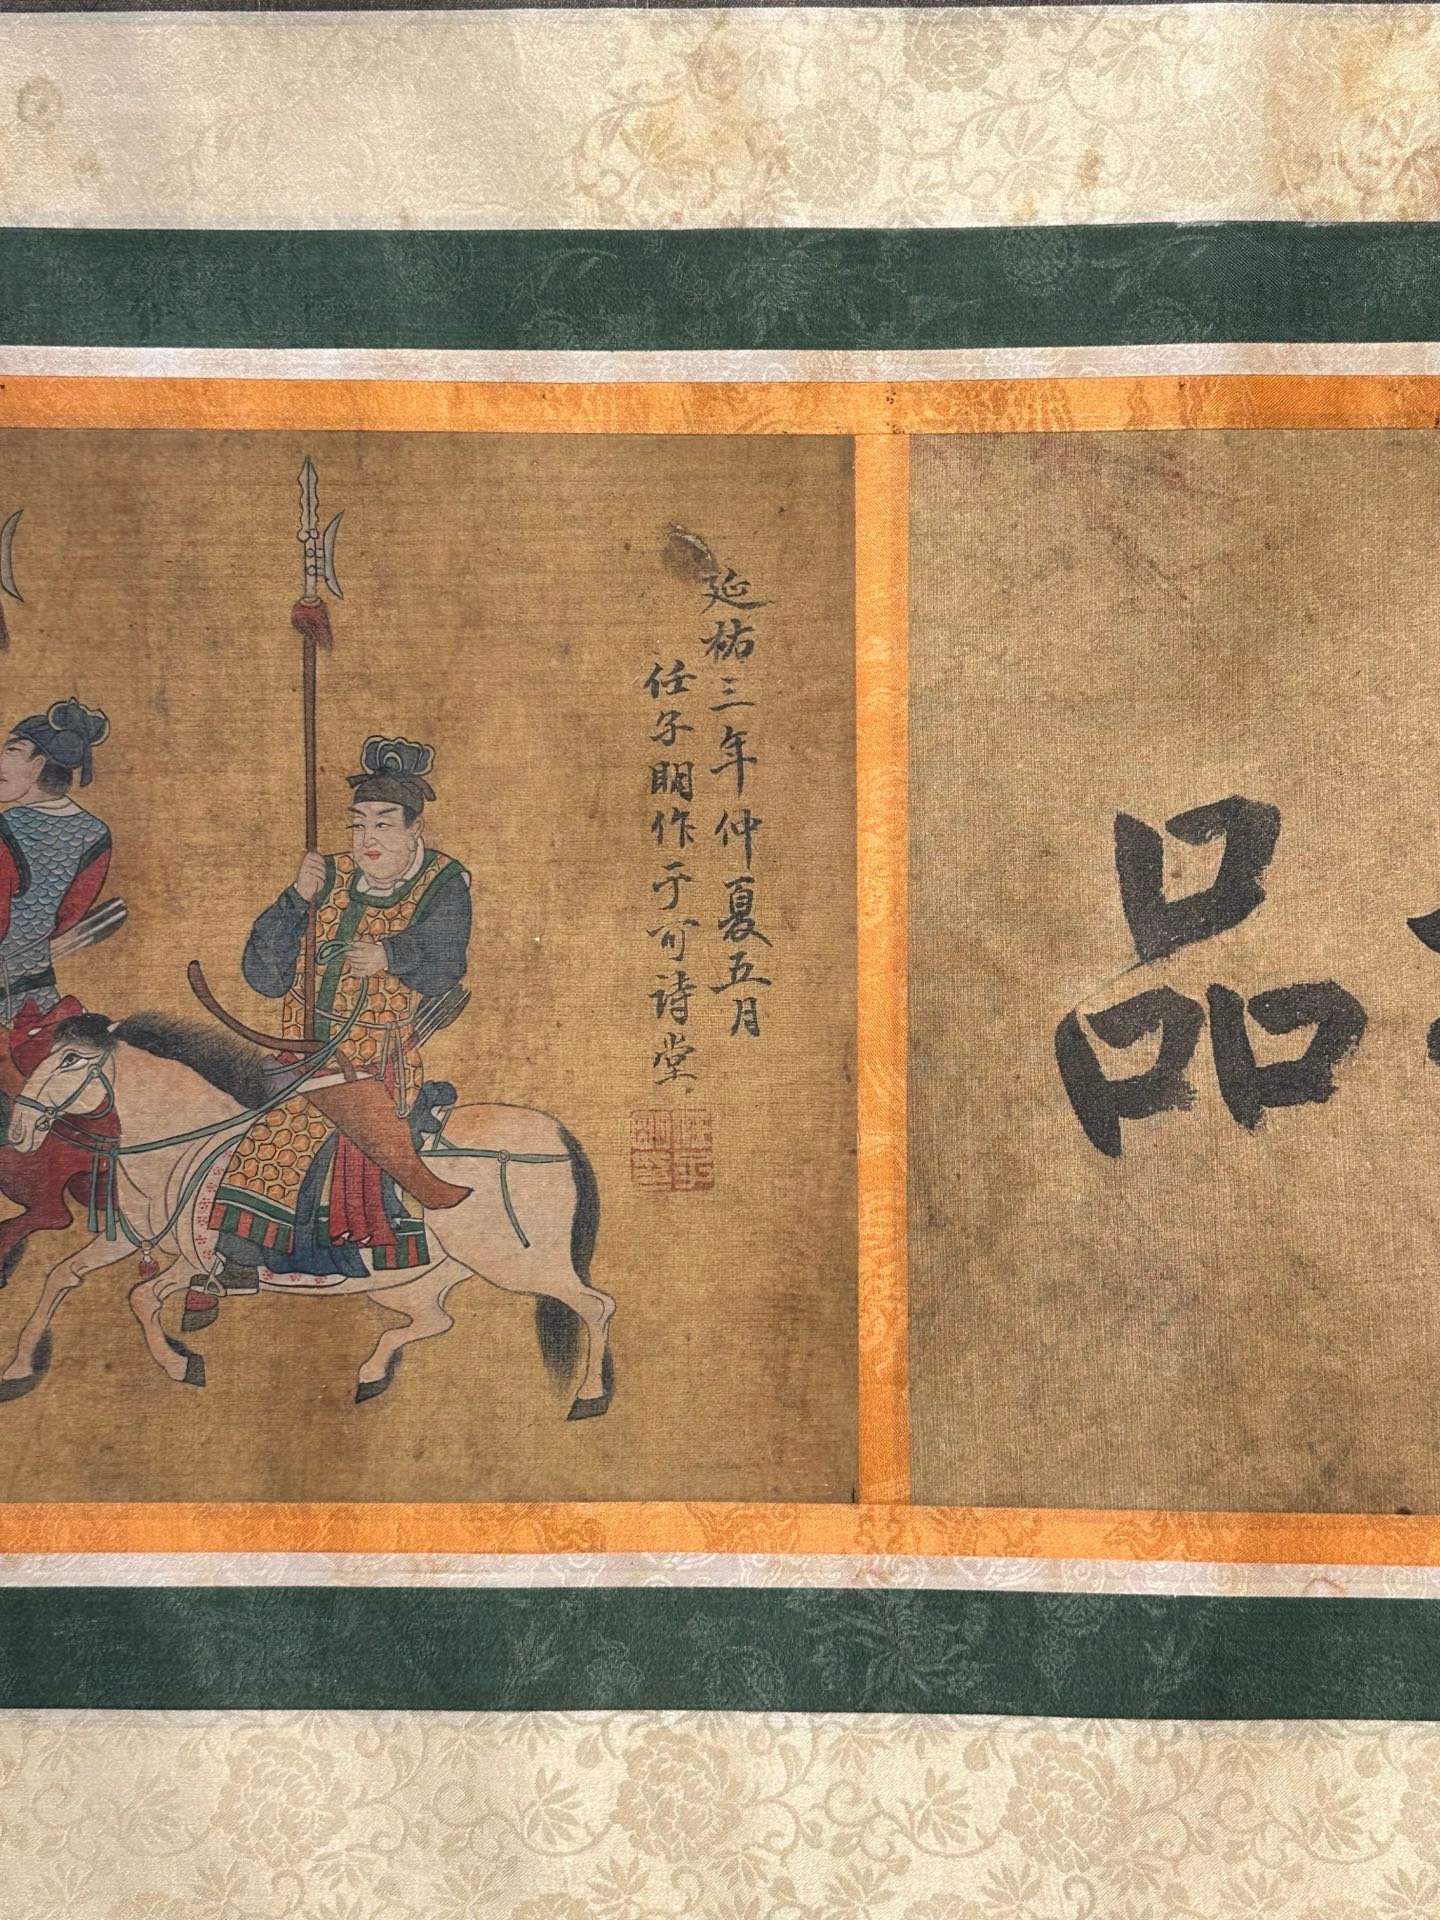 品
延祐三年仲夏五月
任子明作于可诗堂